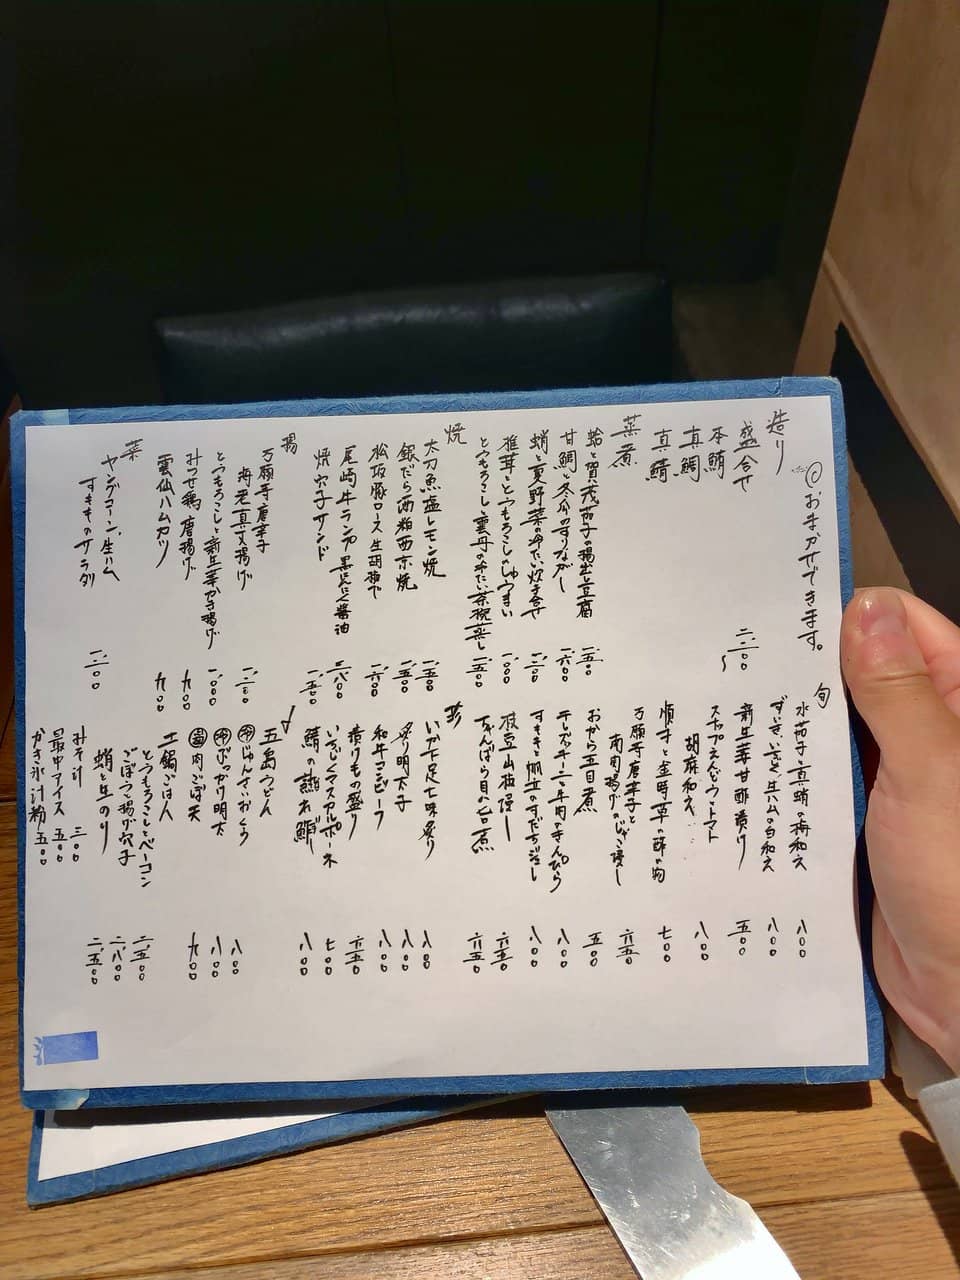 おまかせできます。
造り
盛合せ 二、一〇〇
本鮪
真鯛
真鯖
蒸煮
蛤と賀茂茄子の揚出し豆腐 一、五〇〇
甘鯛と冬瓜のすりながし 一、六〇〇
蛸と夏野菜の冷たい炊き合せ 一、二〇〇
椎茸ととうもろこしのしゅうまい 一、〇〇〇
とうもろこしと雲丹の冷たい茶椀蒸し 一、五〇〇
焼
太刀魚塩レモン焼 一、五〇〇
銀だら酒粕西京焼 一、五〇〇
松坂豚ロース生胡椒で 一、六〇〇
尾崎牛ランプ黒にんにく醤油 二、八〇〇
焼穴子サンド 一、五〇〇
揚
万願寺唐辛子
海老真丈揚げ 一、二〇〇
とうもろこしと新生姜かき揚げ 一、〇〇〇
みつせ鶏唐揚げ 九〇〇
雲仙ハムカツ 九〇〇
菜
ヤングコーン、生ハム
すもものサラダ 一、二〇〇
旬
水茄子と真蛸の梅和え 八〇〇
ずいき、いちじく、生ハムの白和え 八〇〇
新生姜甘酢漬け 五〇〇
スナップえんどうとトマト
胡麻和え 八〇〇
順才と金時草の酢の物 七〇〇
万願寺唐辛子と
南関揚げのじゃこ浸し 六五〇
おから五目煮 五〇〇
チレズッキーニと牛肉のきんぴら 八〇〇
すももと帆立のすだちジュレ 八〇〇
枝豆山椒浸し 六五〇
ちゃんばら貝の旨煮 六五〇
珍
いか下足七味炙り 八〇〇
炙り明太子 八〇〇
和牛コンビーフ 八〇〇
漬けもの盛り 六五〇
いちじくマスカルポーネ 七〇〇
鯖の熟れ鮓 八〇〇
五島うどん
冷 じゅんさいおくら 八〇〇
冷 ぶっかけ明太 八〇〇
温 肉ごぼ天 九〇〇
土鍋ごはん
とうもろこしとベーコン 二、五〇〇
ごぼう揚げ穴子 二、八〇〇
蛸と生のり 二、五〇〇
みそ汁 三〇〇
最中アイス 五〇〇
かき氷汁粉 五〇〇